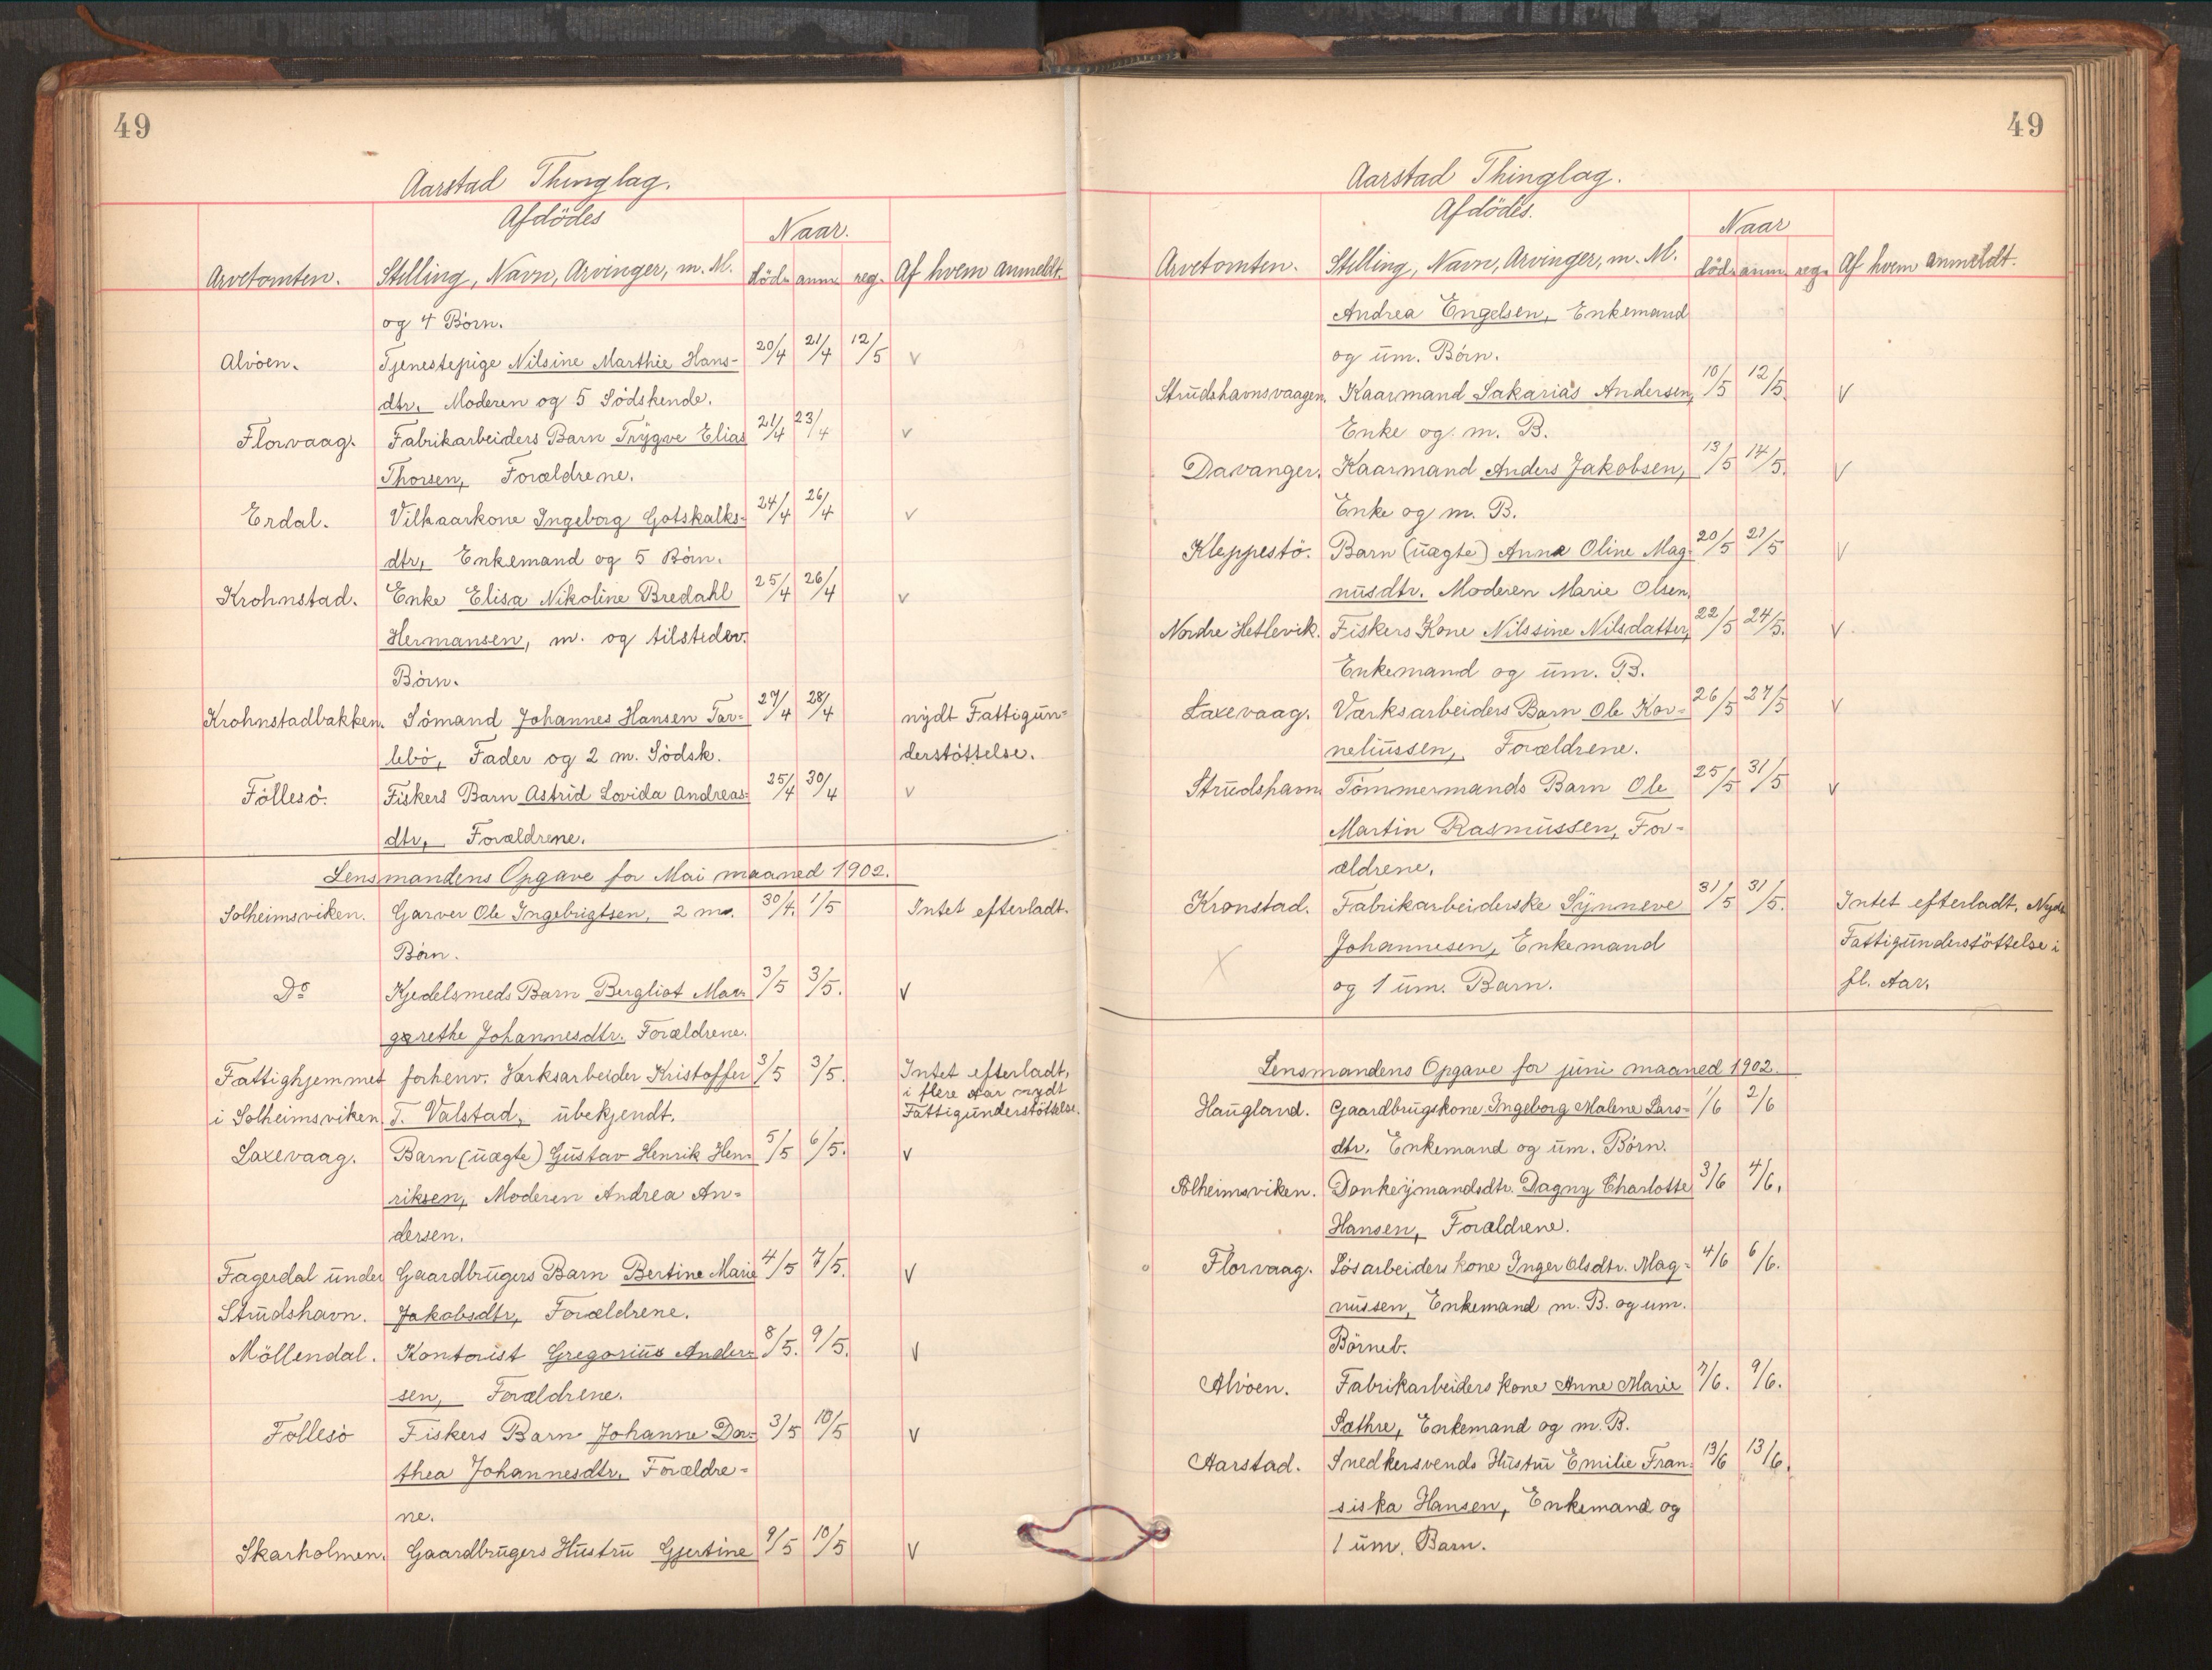 49
Aarstad Thinglag.
Afdödes
Naar.
Arvetomten. Stilling, Navn, Arvinger, m. M. död. anm. reg. Af hvem anmeldt.
og 4 Börn.
Alvöen. Tjenestepige Nilsine Marthie Hans- 20/4 21/4 12/5 v
dtr, Moderen og 5 Södskende.
Florvaag. Fabrikarbeiders Barn Trygve Elias 21/4 23/4 v
Thorsen, Forældrene.
Erdal. Vilkaarkone Ingeborg Gotskalks- 24/4 26/4 v
dtr, Enkemand og 5 Börn.
Krohnstad. Enke Elisa Nikoline Bredahl 25/4 26/4 v
Hermansen, m. og tilstedev.
Börn.
Krohnstadbakken. Sömand Johannes Hansen Tar- 27/4 28/4 nydt Fattigun-
lebö, Fader og 2 m. Södsk. derstöttelse.
Föllesö. Fiskers Barn Astrid Lovida Andreas- 25/4 30/4 v
dtr, Forældrene.
Lensmandens Opgave for Mai maaned 1902.
Solheimsviken. Garver Ole Ingebrigtsen, 2 m. 30/4. 1/5 Intet efterladt.
Börn.
Do Kjedelsmeds Barn Bergliot Mar- 3/5 3/5. v
grethe Johannesdtr. Forældrene.
Fattighjemmet forhenv. Værksarbeider Kristoffer 3/5 3/5. Intet efterladt,
i flere Aar nydt
i Solheimsviken T. Valstad, ubekjendt. Fattigunderstöttelse.
Laxevaag. Barn (uægte) Gustav Henrik Hen- 5/5 6/5. v
riksen, Moderen Andrea An-
dersen.
Fagerdal under Gaardbrugers Barn Bertine Marie 4/5 7/5. v
Strudshavn. Jakobsdtr, Forældrene.
Möllendal. Kontorist Gregorius Ander- 8/5. 9/5. v
sen, Forældrene.
Follesö Fiskers Barn Johanne Dor- 3/5 10/5 v
thea Johannesdtr. Forældre-
ne.
Skarholmen. Gaardbrugers Hustru Gjertine 9/5 10/5 v
49
Aarstad Thinglag.
Afdödes.
Naar
Arvetomten. Stilling, Navn, Arvinger, m. M. död. anm. reg. Af hvem anmeldt.
Andrea Engelsen, Enkemand
og um. Börn.
Strudshavnsvaagen. Kaarmand Sakarias Andersen, 10/5 12/5. v
Enke og m. B.
Davanger. Kaarmand Anders Jakobsen, 13/5 14/5. v
Enke og m. B.
Kleppestö. Barn (uægte) Anna Oline Mag- 20/5 21/5 v
nusdtr. Moderen Marie Olsen.
Nordre Hetlevik. Fiskers Kone Nilssine Nilsdatter, 22/5 24/5. v
Enkemand og um. B.
Laxevaag. Værksarbeiders Barn Ole Kor- 26/5 27/5 v
neliussen, Forældrene.
Strudshavn Tömmermands Barn Ole 25/5 31/5 v
Martin Rasmussen, For-
ældrene.
Kronstad. Fabrikarbeiderske Synneve 31/5 31/5. Intet efterladt, Nydt
Johannesen, Enkemand Fattigunderstöttelse i
og 1 um. Barn. fl. Aar.
Lensmandens Opgave for juni maaned 1902.
Haugland. Gaardbrugskone Ingeborg Malene Lars- 1/6 2/6
dtr. Enkemand og um. Börn.
Solheimsviken. Donkeymandsdtr. Dagny Charlotte 3/6 4/6.
Hansen, Forældrene.
Florvaag. Lösarbeiders kone Inger Olsdtr. Mag- 4/6 6/6.
nussen, Enkemand m. B. og um.
Börneb.
Alvöen. Fabrikarbeiders kone Anne Marie 7/6. 9/6.
Sæthre, Enkemand og m. B.
Aarstad. Snedkersvends Hustru Emilie Fran- 13/6 13/6.
siska Hansen, Enkemand og
1 um. Barn.